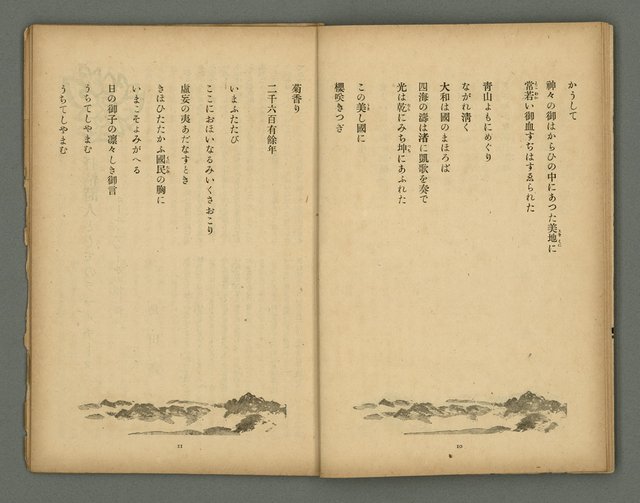 かうして
神々の御はからひの中にあつた美地に
常若い御血すぢはすゑられた
青山よもにめぐり
ながれ清く
大和は國のまほろば
四海の濤は渚に凱歌を奏で
光は乾にみち坤にあふれた
この美し國に
櫻咲きつぎ
10
菊香り
二千六百有餘年
いまふたたび
ここにおほいなるみいくさおこり
虛妄の夷あだなすとき
きほひたたかふ國民の胸に
いまこそよみがへる
日の御子の凛々しき御言
うちてしやまむ
うちてしやまむ
11